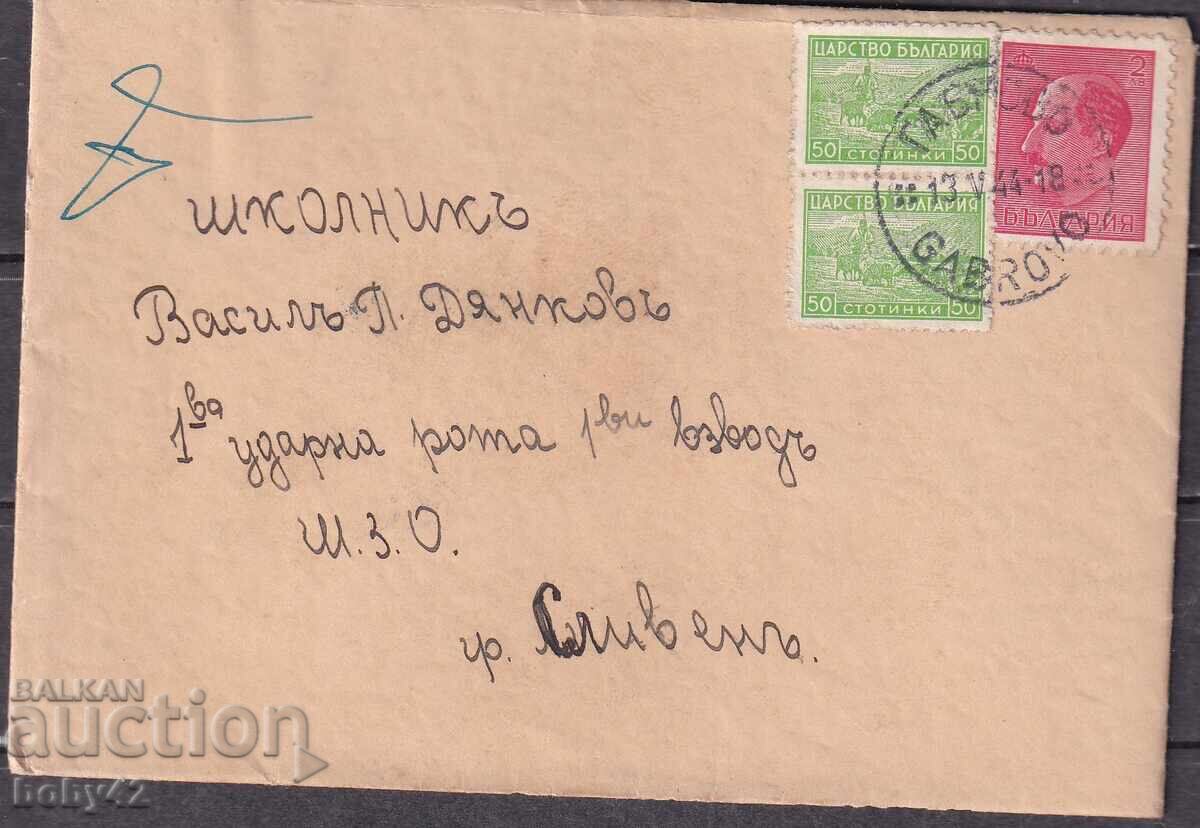 ЦАРСТВО БЪЛГАРИЯ
50 СТОТИНКИ 50
ЦАРСТВО БЪЛГАРИЯ
50 СТОТИНКИ 50
2 ЛВ
БЪЛГАРИЯ
ГАБРОВО
13.V.44-18
GABROVO
школникъ
Василъ П. Дянковъ
1ва ударна рота 1ви взводъ
Ш.З.О.
гр. Сливенъ.
BALKAN
auction
boby42